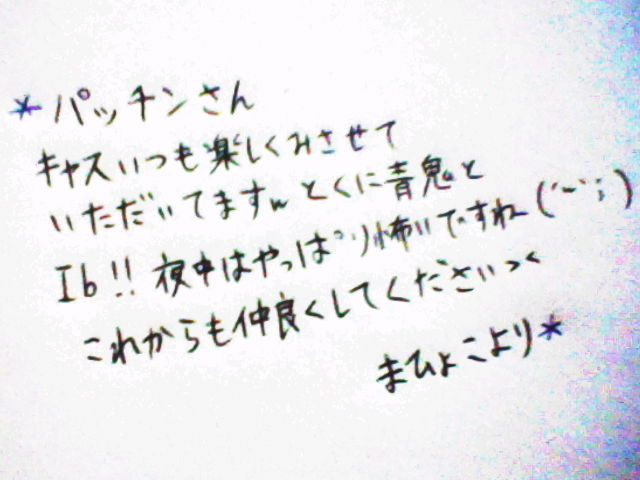 *パッチンさん
キャスいつも楽しくみさせて
いただいてますw とくに青鬼と
Ib!! 夜中はやっぱり怖いですねー(´~`;)
これからも仲良くしてくださいっ
まひょこより*